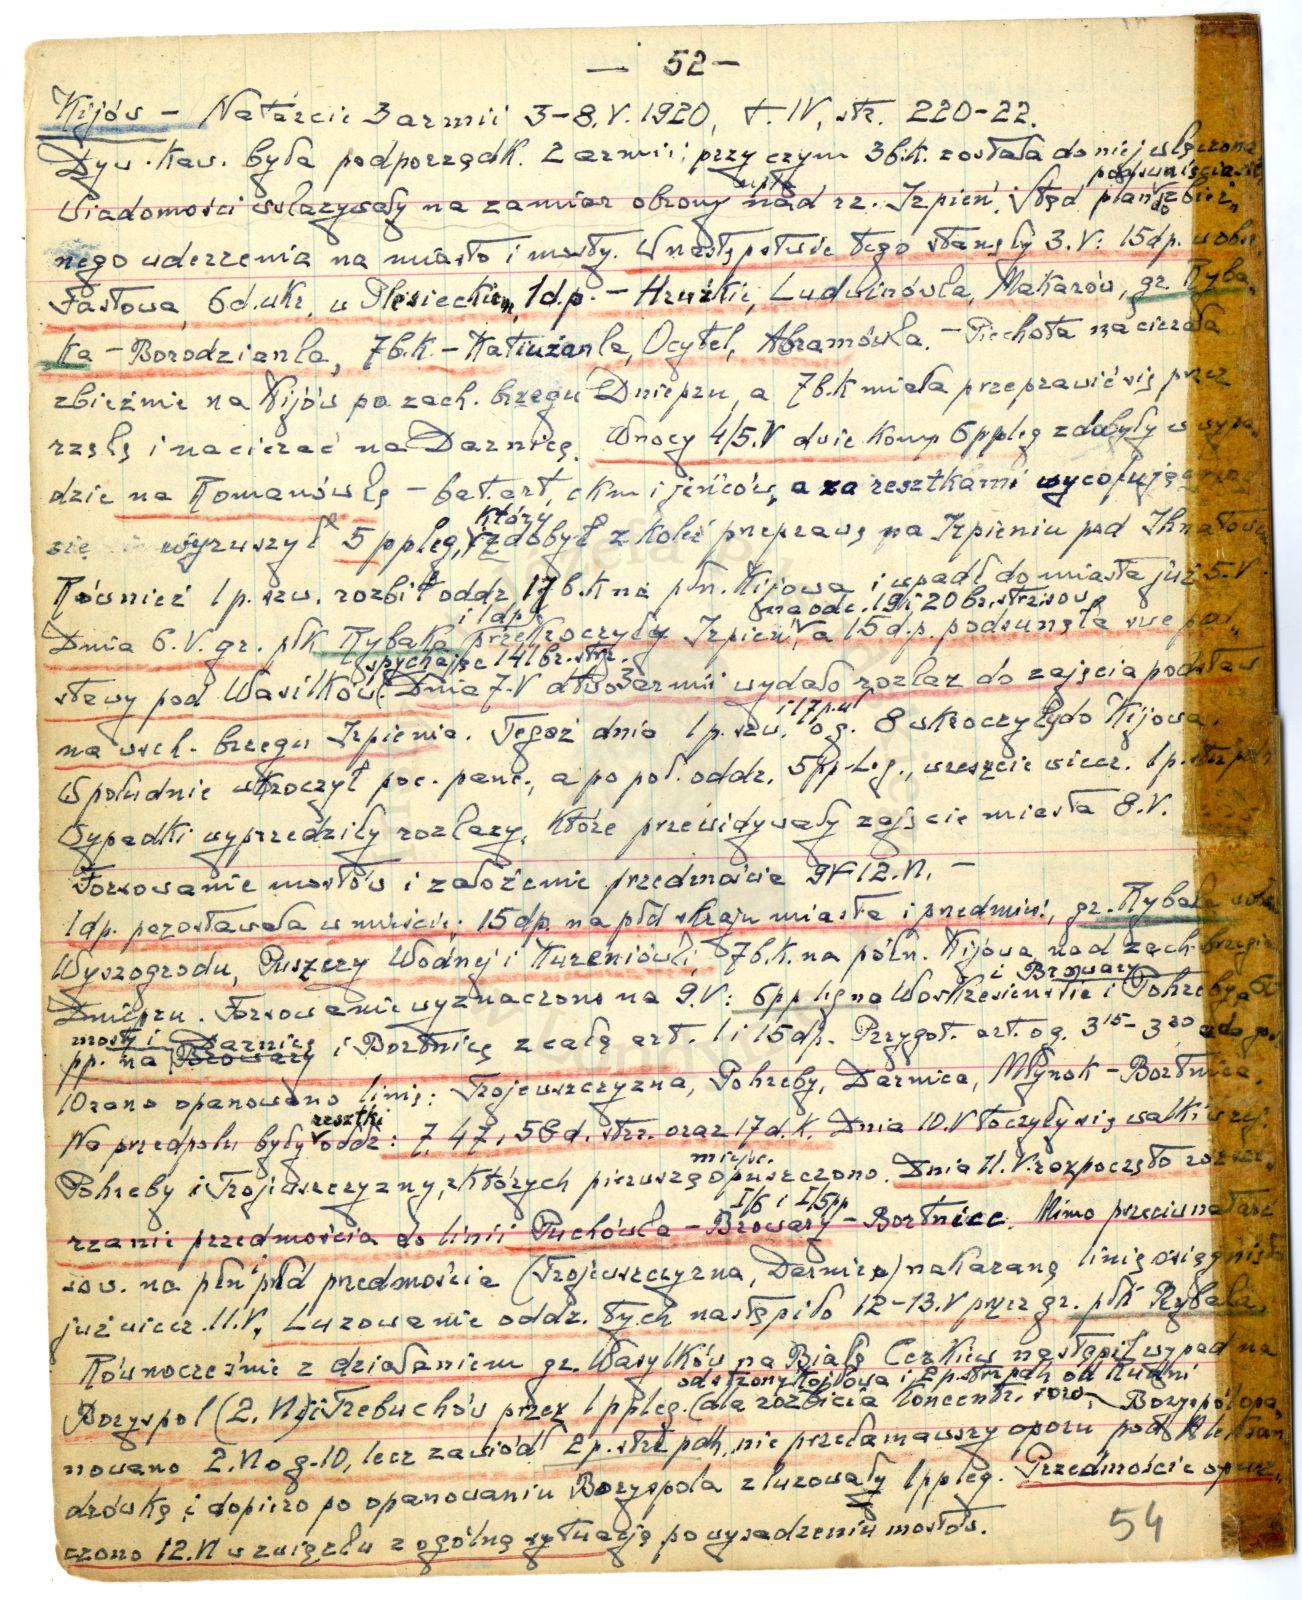 — 52 —
Kijów – Natarcie 3 armii 3–8.V.1920, t. IV, str. 220–22.
Dyw. kaw. była podporządk. 2 armii; przy czym 3 b.k. została do niej włączona
Wiadomości wskazywały na zamiar obrony npla nad rz. Irpień, stąd plan podsunięcia się do zbież-
nego uderzenia na miasto i mosty. W następstwie tego stanęły 3.V: 15 dp. w ob.
Fastowa, 6 d. ukr. w Plesieckiem, 1 d.p. – Hruzkie, Ludwinówka, Makarów, gr. Ryba-
ka – Borodzianka, 7 b.k. – Katiużanka, Ocytel, Abramówka. – Piechota nacierała
zbieżnie na Kijów po zach. brzegu Dniepru, a 7 b.k miała przeprawić się przez
rzekę i nacierać na Darnicę. W nocy 4/5.V dwie komp 6 ppleg zdobyły w wypa-
dzie na Romanówkę – bat. art, ckm i jeńców, a za resztkami wycofującymi
się wyruszył 5 ppleg, który zdobył z kolei przeprawę na Irpieniu pod Ihnatówką
Również 1 p. szw. rozbił oddz 17 b.k na płn. Kijowa i wpadł do miasta już 5.V
Dnia 6.V. gr. płk Rybaka i 1 dp przekroczyły Irpień na odc. 19 i 20 br. strz sow, a 15 d.p. podsunęła swe pod-
stawy pod Wasilków spychając 141 br. str. Dnia 7.V dtwo 3 armii wydało rozkaz do zajęcia podstaw
na wsch. brzegu Irpienia. Tegoż dnia 1 p. szw. i 17 p.uł o g. 8 wkroczyły do Kijowa.
W południe wkroczył poc. panc., a po poł. oddz. 5 pp Leg., wreszcie wiecz. 1 p. strz podh
Wypadki wyprzedziły rozkazy, które przewidywały zajęcie miasta 8.V.
Forsowanie mostów i założenie przedmościa 9.V–12.VI. –
1 dp. pozostawała w mieście; 15 dp. na płd skraju miasta i przedmieść, gr. Rybaka
Wyszogrodu, Puszczy Wodnej i Kureniówki, 7 b.k. na półn. Kijowa nad zach. brzegiem
Dniepru. Forsowanie wyznaczono na 9.V: 6 pp leg na Woskresienskie i Pohreby i Browary, a 50
pp. na mosty i Darnicę Browary i Bortnicę z całą art. 1 i 15 dp. Przygot. art. og. 3¹⁵–3³⁰ a do g.
10 rano opanowano linię: Trojeszczyzna, Pohreby, Darnica, Młynok – Bortnica.
Na przedpolu były resztki oddz: 7, 47, 58 d. strz. oraz 17 d.k. Dnia 10.V toczyły się walki w rej.
Pohreby i Trojeszczyzny, z których pierwszą miejsc. opuszczono. Dnia 11.V. rozpoczęto rozsze-
rzanie przedmościa do linii Puchówka – I/6 i I/5pp Browary – Bortnice. Mimo przeciwnatarć
sow. na płn i płd przedmościa (Trojeszczyzna, Darnica) nakazaną linię osiągnięto
już wiecz. 11.V. Luzowanie oddz. tych nastąpiło 12–13.V przez gr. płk Rybaka.
Równocześnie z działaniem gr. Wasylków na Białą Cerkiew nastąpił wypad na
Boryspol (2.VI) i Trebuchów przez 1 ppleg. od strony i 2 p. strz pdh od Rudni (dla rozbicia koncentr. sow. – Boryspol opa-
nowano 2.VI o g. 10, lecz zawiódł 2 p. strz pdh, nie przełamawszy oporu pod Aleksan-
drówką i dopiero po opanowaniu Boryspola zluzowały 1 ppleg. Przedmoście opusz-
czono 12.VI w związku z ogólną sytuacją po wysadzeniu mostów.
54